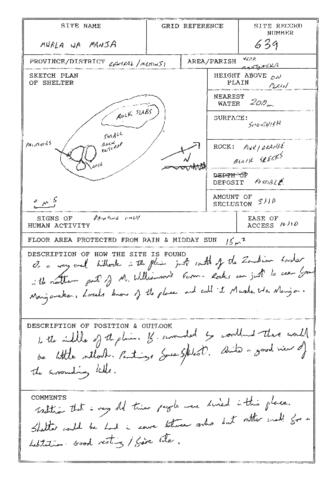 SITE NAME GRID REFERENCE SITE RECORD NUMBER
MWALA WA MANJA 639
PROVINCE/DISTRICT CENTRAL/ AREA/PARISH NEAR
SKETCH PLAN OF SHELTER
ROCK SLABS
SMALL ROCK OUTCROP
PAINTINGS
N
HEIGHT ABOVE PLAIN ON PLAIN
NEAREST WATER 200m
SURFACE: SMOOTHISH
ROCK: PINK/ORANGE
BLACK SPECKS
DEPTH OF DEPOSIT POSSIBLE
AMOUNT OF SECLUSION 5/10
SIGNS OF HUMAN ACTIVITY PAINTING ONLY EASE OF ACCESS 10/10
FLOOR AREA PROTECTED FROM RAIN & MIDDAY SUN 15m²
DESCRIPTION OF HOW THE SITE IS FOUND
On a very small hillock in the plain just south of the Zambian border
in the northern part of Mr. Williamson's Farm. Rocks can just be seen from
Locals know of the place and call it Mwala Wa Manja.
DESCRIPTION OF POSITION & OUTLOOK
In the middle of the plain. If surrounded by woodland there would
be little outlook. Paintings face Quite a good view of
the surrounding hills.
COMMENTS
that in very old times people were buried in this place.
Shelter could be had in some between rocks but rather small for a
habitation. Good resting / fire site.